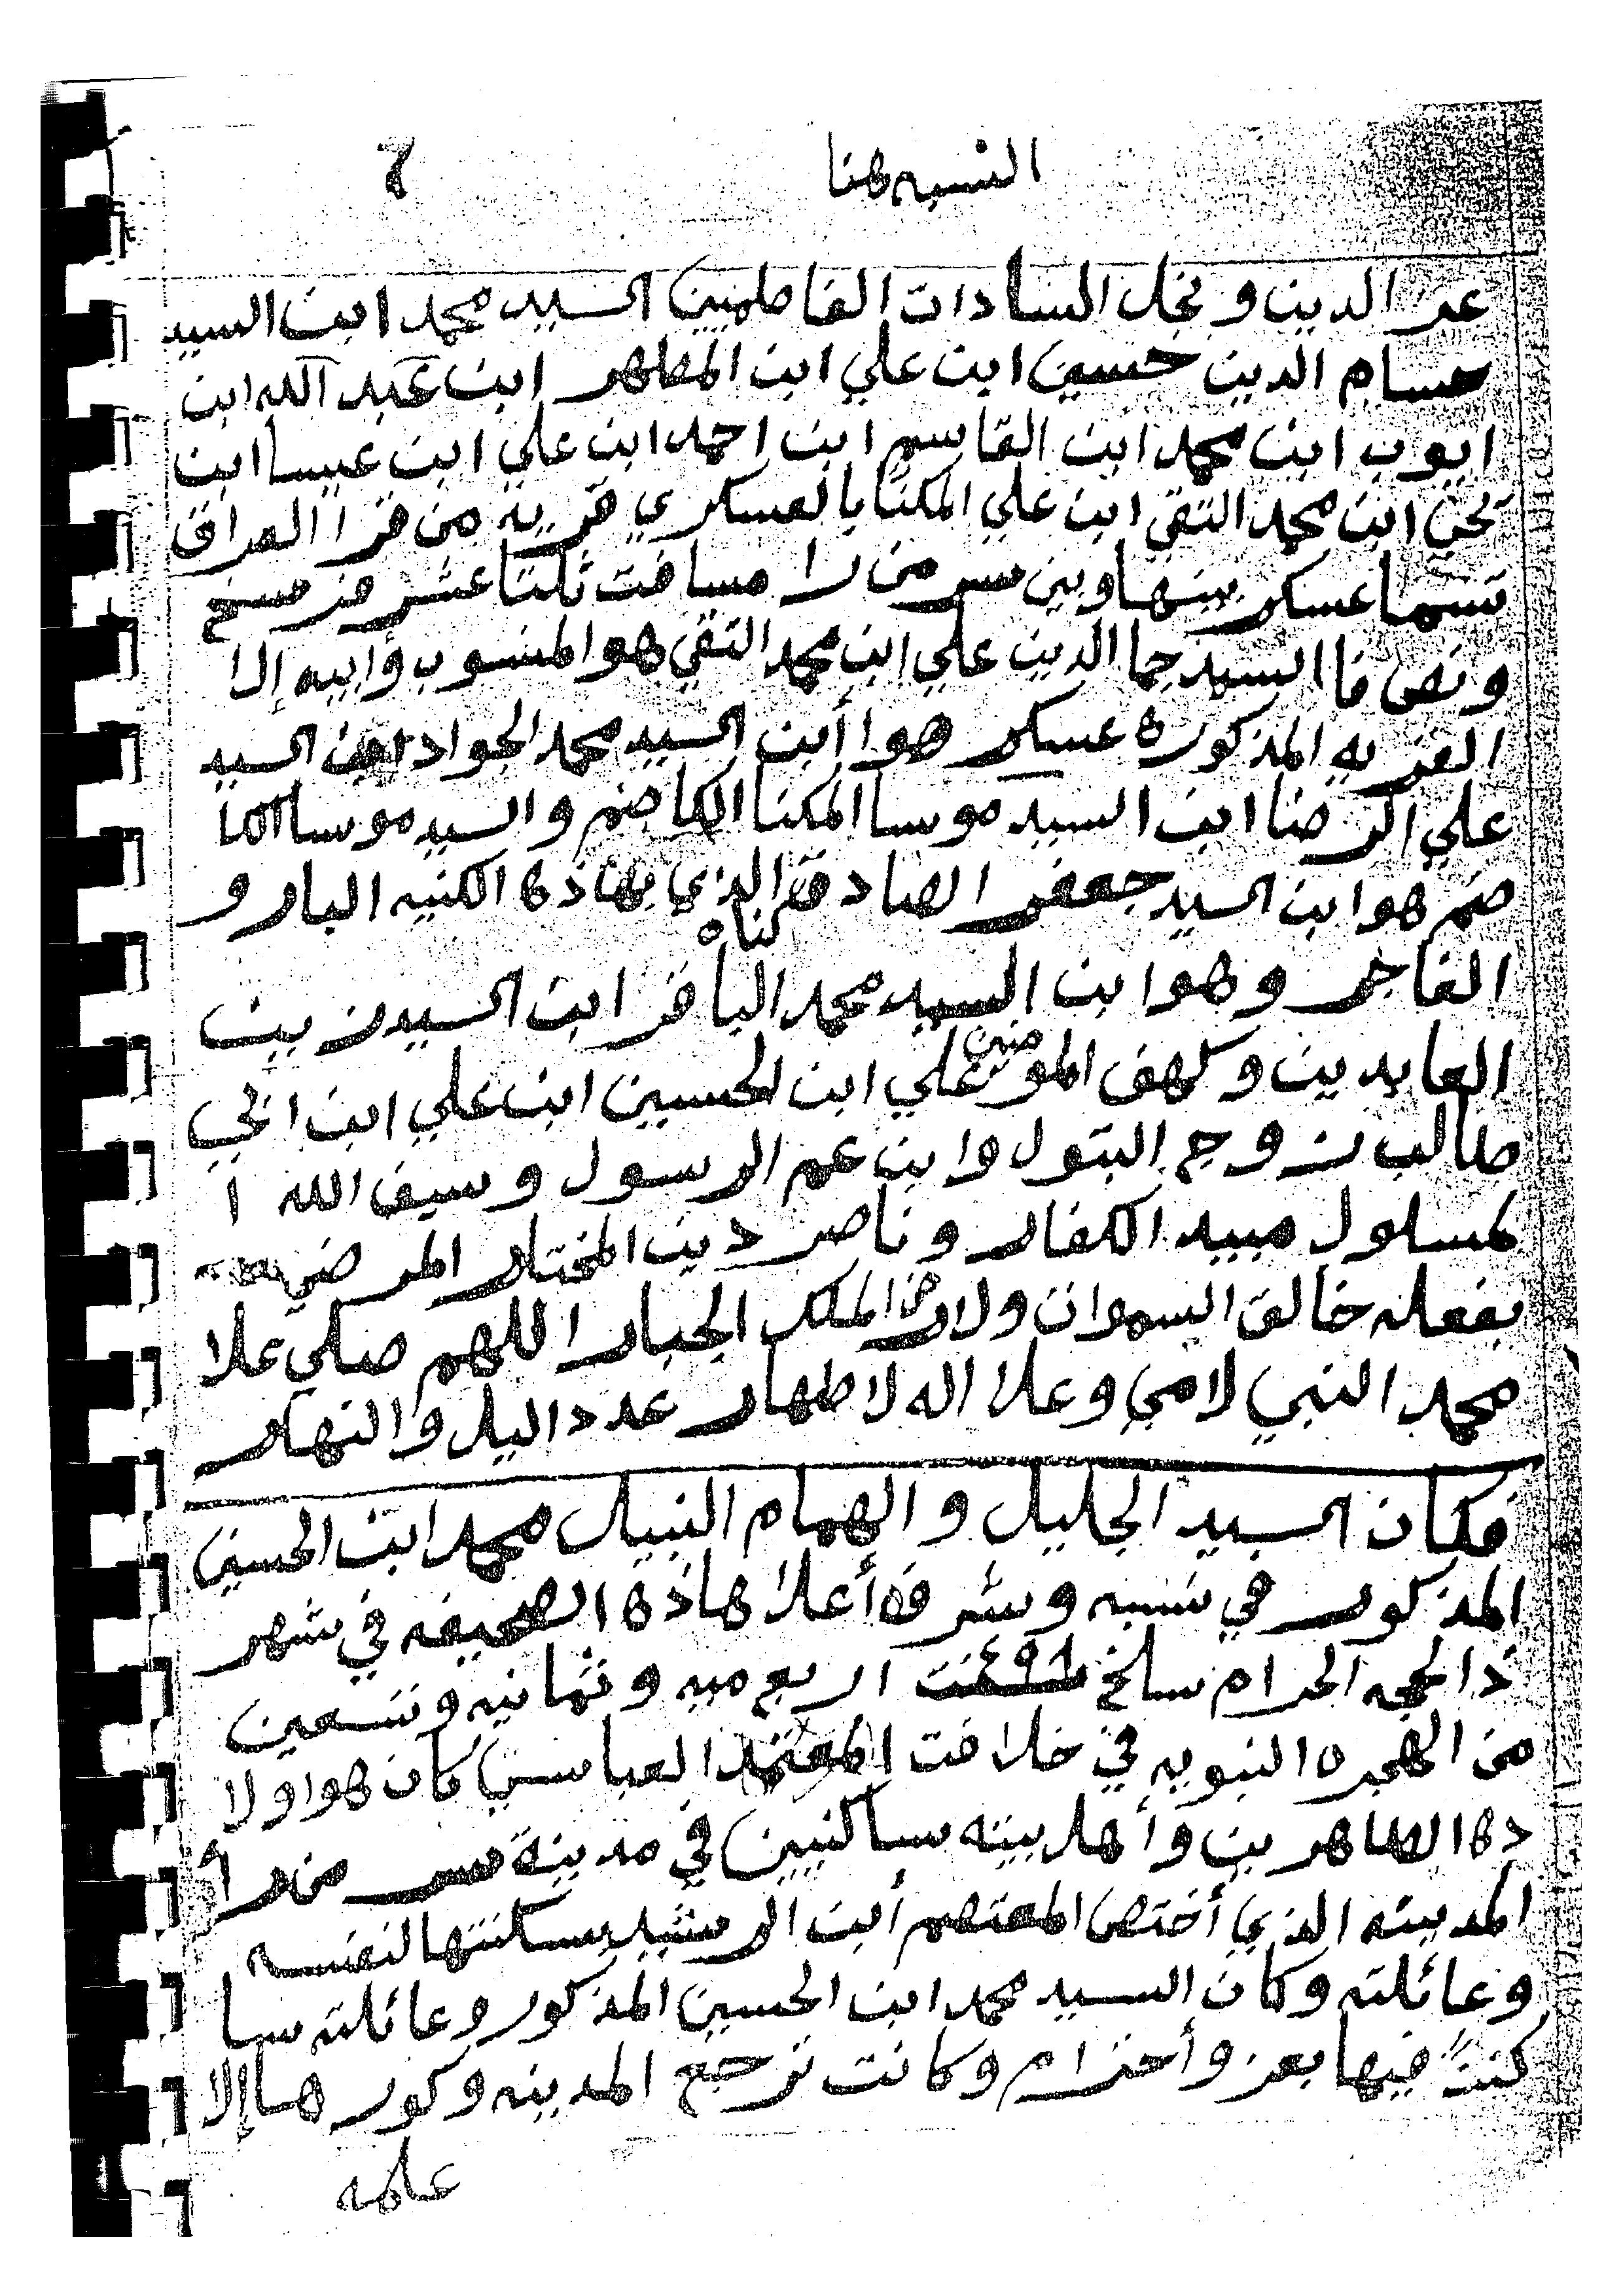 النسبه هنا ٦
عز الدين ونجل السادات الفاطميين السيد محمد ابن السيد
حسام الدين حسين ابن علي ابن المطهر ابن عبد الله ابن
ايوب ابن محمد ابن القاسم ابن احمد ابن علي ابن عيسا ابن
يحي ابن محمد التقي ابن علي المكنا بالعسكري قريه من قرا العراق
تسما عسكر بينها وبين سر من را مسافت ثلثا عشر فرسخ
ونصفا السيد جما الدين علي ابن محمد التقي هو المنسوب وابيه إلا
القريه المذكوره عسكر هوا أبن السيد محمد الجواد ابن السيد
علي الرضا ابن السيد موسا المكنا الكاضم والسيد موسا الكا
ضم هو ابن السيد جعفر الصادق الذي كناه بهاذه الكنيه البار و
الفاجر وهو ابن السيد محمد الباقر ابن السيد زين
العابدين وكهف المومنين علي ابن الحسين ابن علي ابن ابي
طالب زوج البتول وابن عم الرسول وسيف الله ا
لمسلول مبيد الكفار وناصر دين المختار المرضي
بفعله خالق السموات ولارض الملك الجبار اللهم صلي علا
محمد النبي لامي وعلا اله لاطهار عدد اليل والنهار
فكان السيد الجليل والهمام النبيل محمد ابن الحسين
المذكور في نسبه وشرفه أعلا هاذه الصحيفه في شهر
ذالحجه الحرام سلخ ٤٩٨ سنت اربع ميه وثمانيه وتسعين
من الهجره النبويه في خلافت المعتمد العباسي كان هوا واولا
ده الطاهرين وأهل بيته ساكنين في مدينة سر من رأ
المدينه الذي أختص المعتصم أبن الرشيد بسكنتها لنفسه
وعائلته وكان السيد محمد ابن الحسين المذكور وعائلته سا
كنتً فيها بعز وأحترام وكانت ترجع المدينه وكورها إلا
علمه